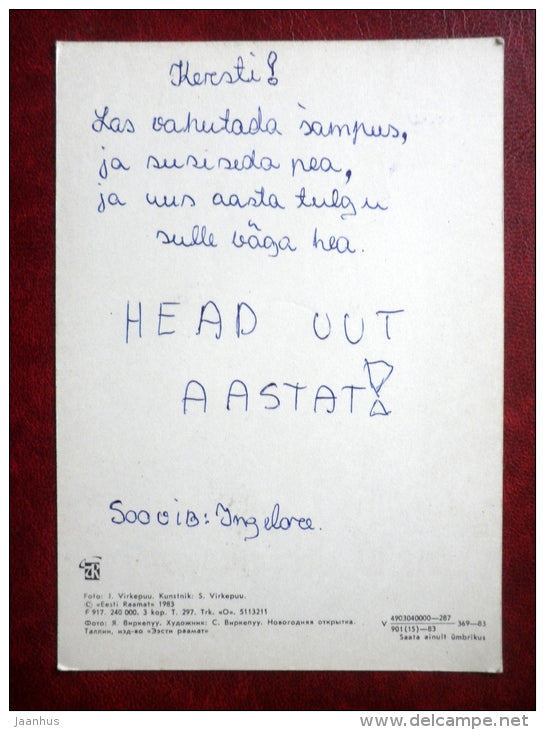 Kersti!
Las vahutada šampus,
ja susiseda pea,
ja uus aasta tulgu
sulle väga hea.
HEAD UUT
AASTAT!
Soovib: Ingelore.
Foto: J. Virkepuu. Kunstnik: S. Virkepuu.
© «Eesti Raamat» 1983
F 917. 240 000. 3 kop. T. 297. Trk. «O». 5113211
Фото: Я. Виркепуу. Художник: С. Виркепуу. Новогодняя открытка.
Таллин, изд-во «Ээсти раамат»
V 4903040000—287
901(15)—83 369—83
Saata ainult ümbrikus
-Maxima-
www.delcampe.net